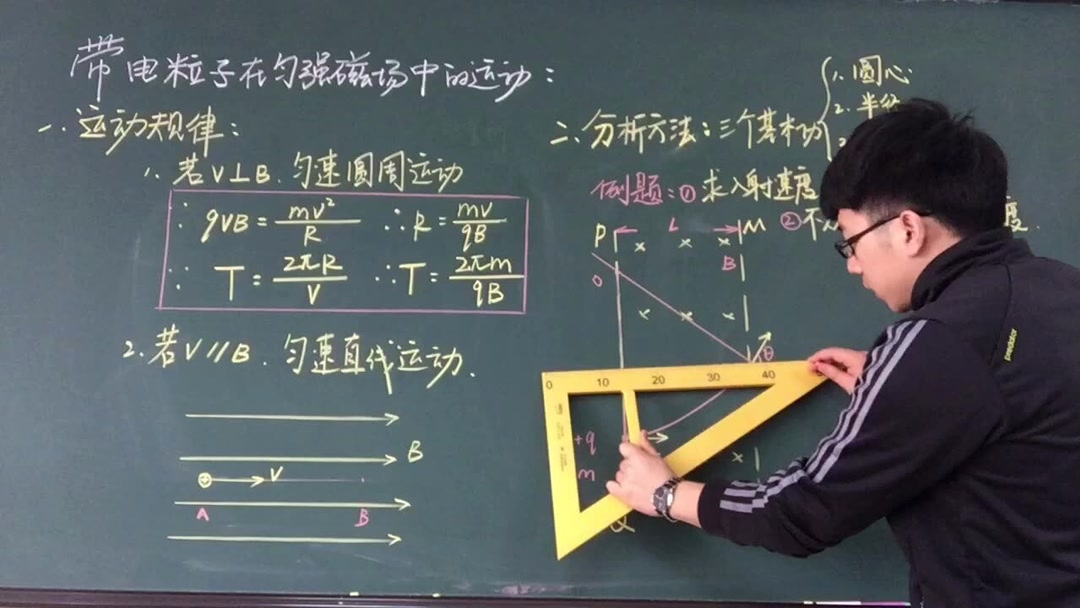 带电粒子在匀强磁场中的运动：
一、运动规律：
1、若V⊥B、匀速圆周运动
∵ qVB = mv²/R ∴R = mv/qB
∵ T = 2πR/V ∴T = 2πm/qB
2、若V∥B、匀速直线运动.
B
⊕ V
A B
二、分析方法：三个基本功
1. 圆心
2. 半径
例题：① 求入射速度
②不
度.
P L M
B
O
θ
0 10 20 30 40
+q
m
Q
predator